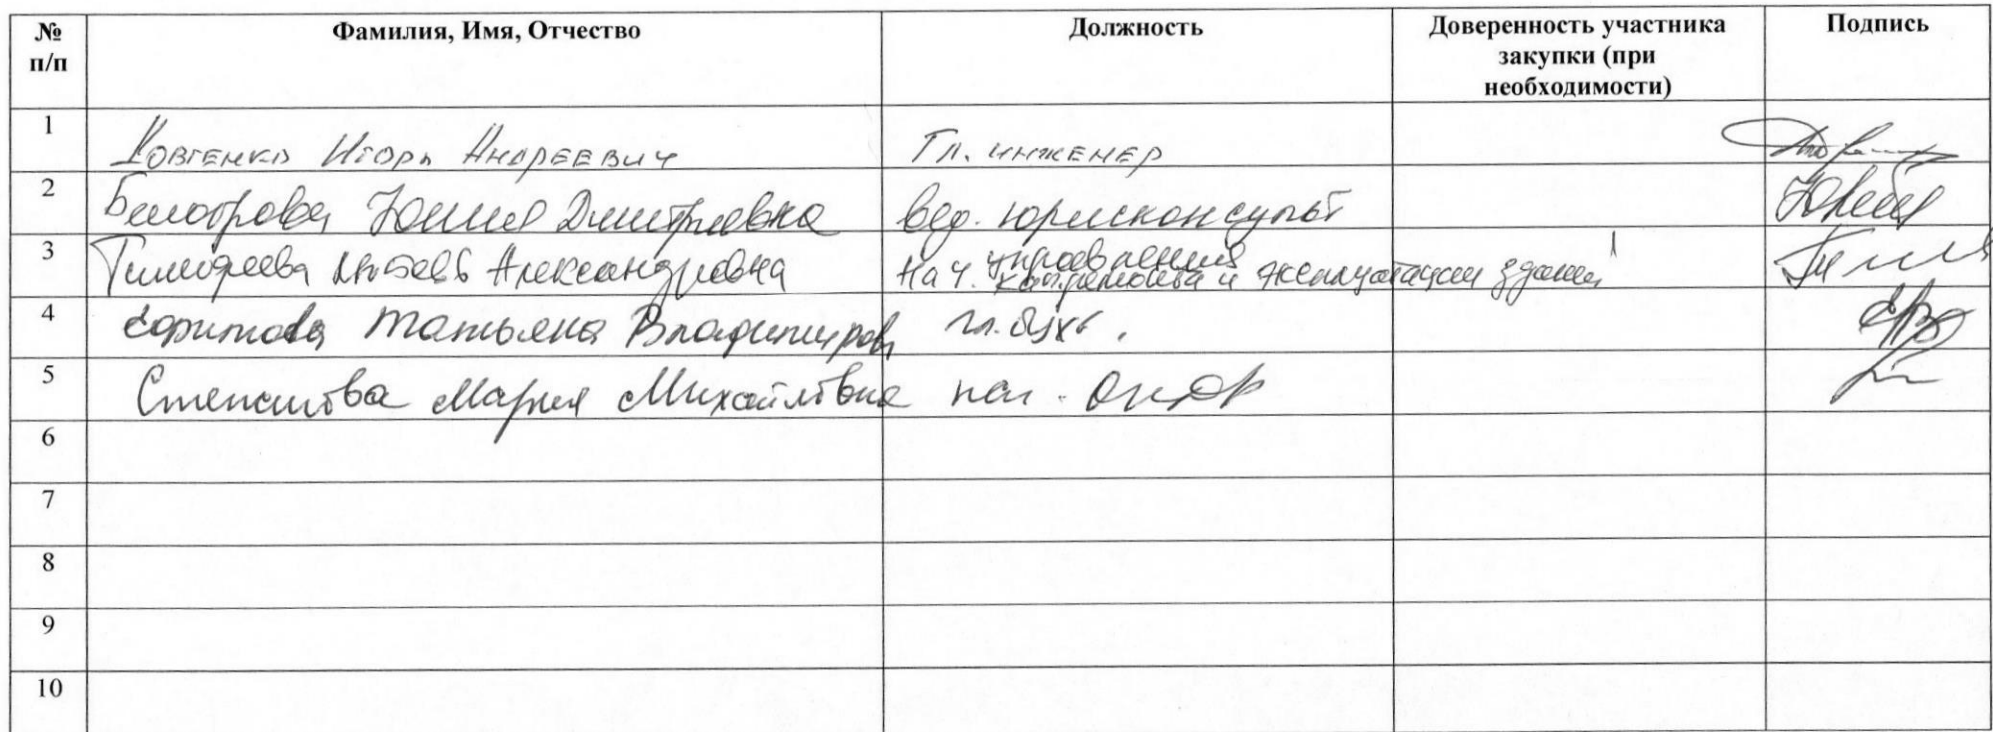 № п/п Фамилия, Имя, Отчество Должность Доверенность участника закупки (при необходимости) Подпись
1 Игорь Андреевич Гл. инженер
2 Юлия Дмитриевна вед. юрисконсульт
3 Тимофеева Любовь Александровна Нач. управления капремонта и эксплуатации зданий
4 Татьяна Владимировн гл. бухг.
5 Мария Михайловна нач.
6
7
8
9
10